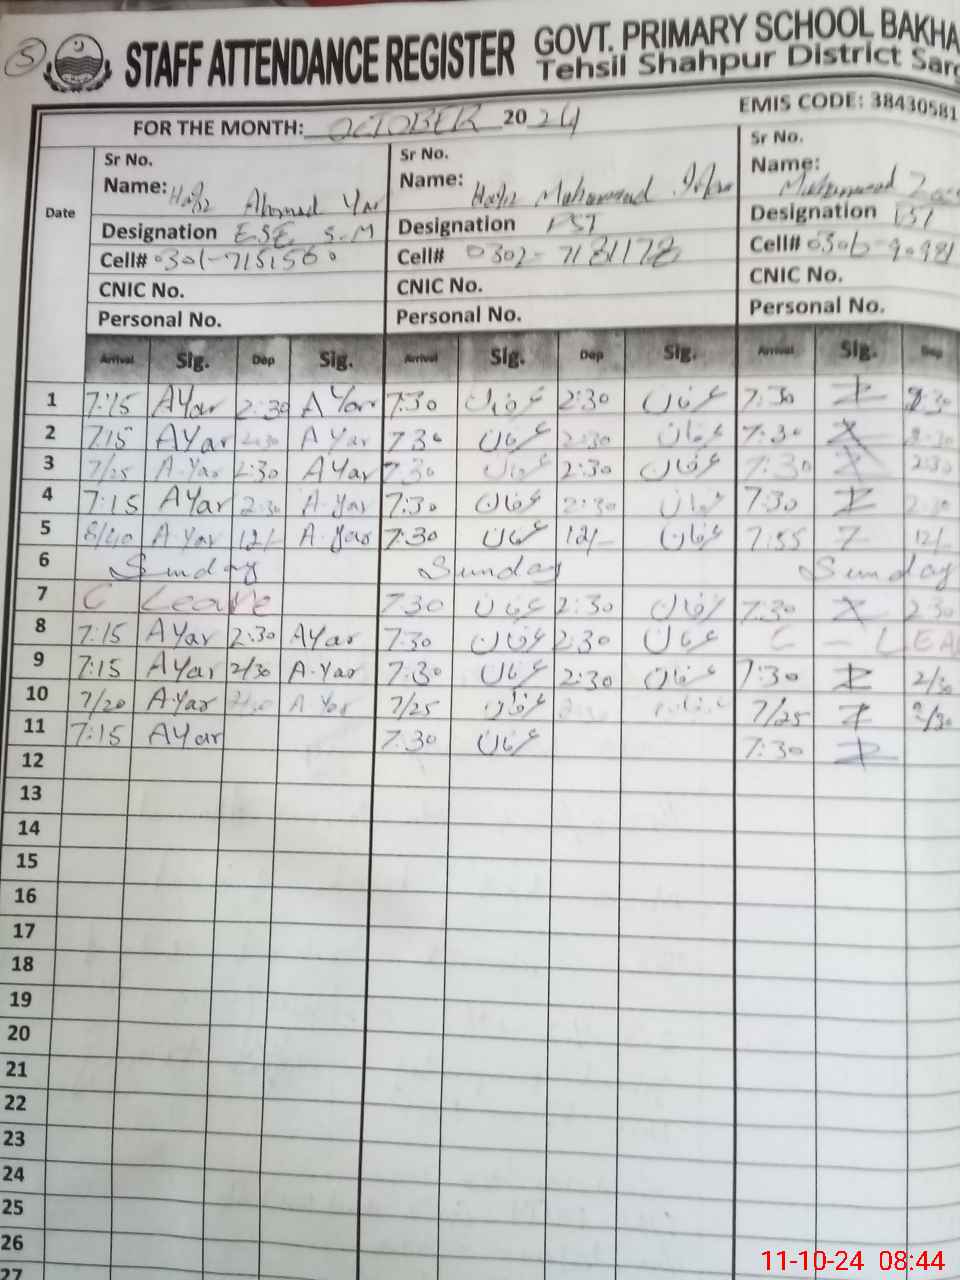 5 STAFF ATTENDANCE REGISTER GOVT. PRIMARY SCHOOL BAKHA
Tehsil Shahpur District Sarg
EMIS CODE: 38430581
FOR THE MONTH: OCTOBER 2024
Date Sr No. Sr No. Sr No.
Name: Hafiz Ahmad Yar Name: Hafiz Muhammad Name: Muhammad
Designation ESE S.M Designation PST Designation PST
Cell# Cell# 0302- Cell# 0306-
CNIC No. CNIC No. CNIC No.
Personal No. Personal No. Personal No.
Arrival Sig. Dep Sig. Arrival Sig. Dep Sig. Arrival Sig. Dep
1 7:15 AYar 2:30 AYar 7:30 عرفان 2:30 عرفان 7:30 2:30
2 7:15 AYar 2:30 AYar 7:30 عرفان 2:30 عرفان 7:30 2:30
3 7/25 A.Yar 2:30 AYar 7:30 عرفان 2:30 عرفان 7:30 2:30
4 7:15 AYar 2:30 A.Yar 7:30 عرفان 2:30 عرفان 7:30 2:30
5 8/40 A.Yar 12/- A.Yar 7:30 عرفان 12/- عرفان 7:55 12/-
6 Sunday Sunday Sunday
7 C Leave 7:30 عرفان 2:30 عرفان 7:30 2:30
8 7:15 AYar 2:30 AYar 7:30 عرفان 2:30 عرفان C - LEA
9 7:15 AYar 2/30 A.Yar 7:30 عرفان 2:30 عرفان 7:30 2/30
10 7/20 A.Yar 2/30 A.Yar 7/25 عرفان 2:30 عرفان 7/25 2/30
11 7:15 AYar 7:30 عرفان 7:30
12
13
14
15
16
17
18
19
20
21
22
23
24
25
26
27
11-10-24 08:44